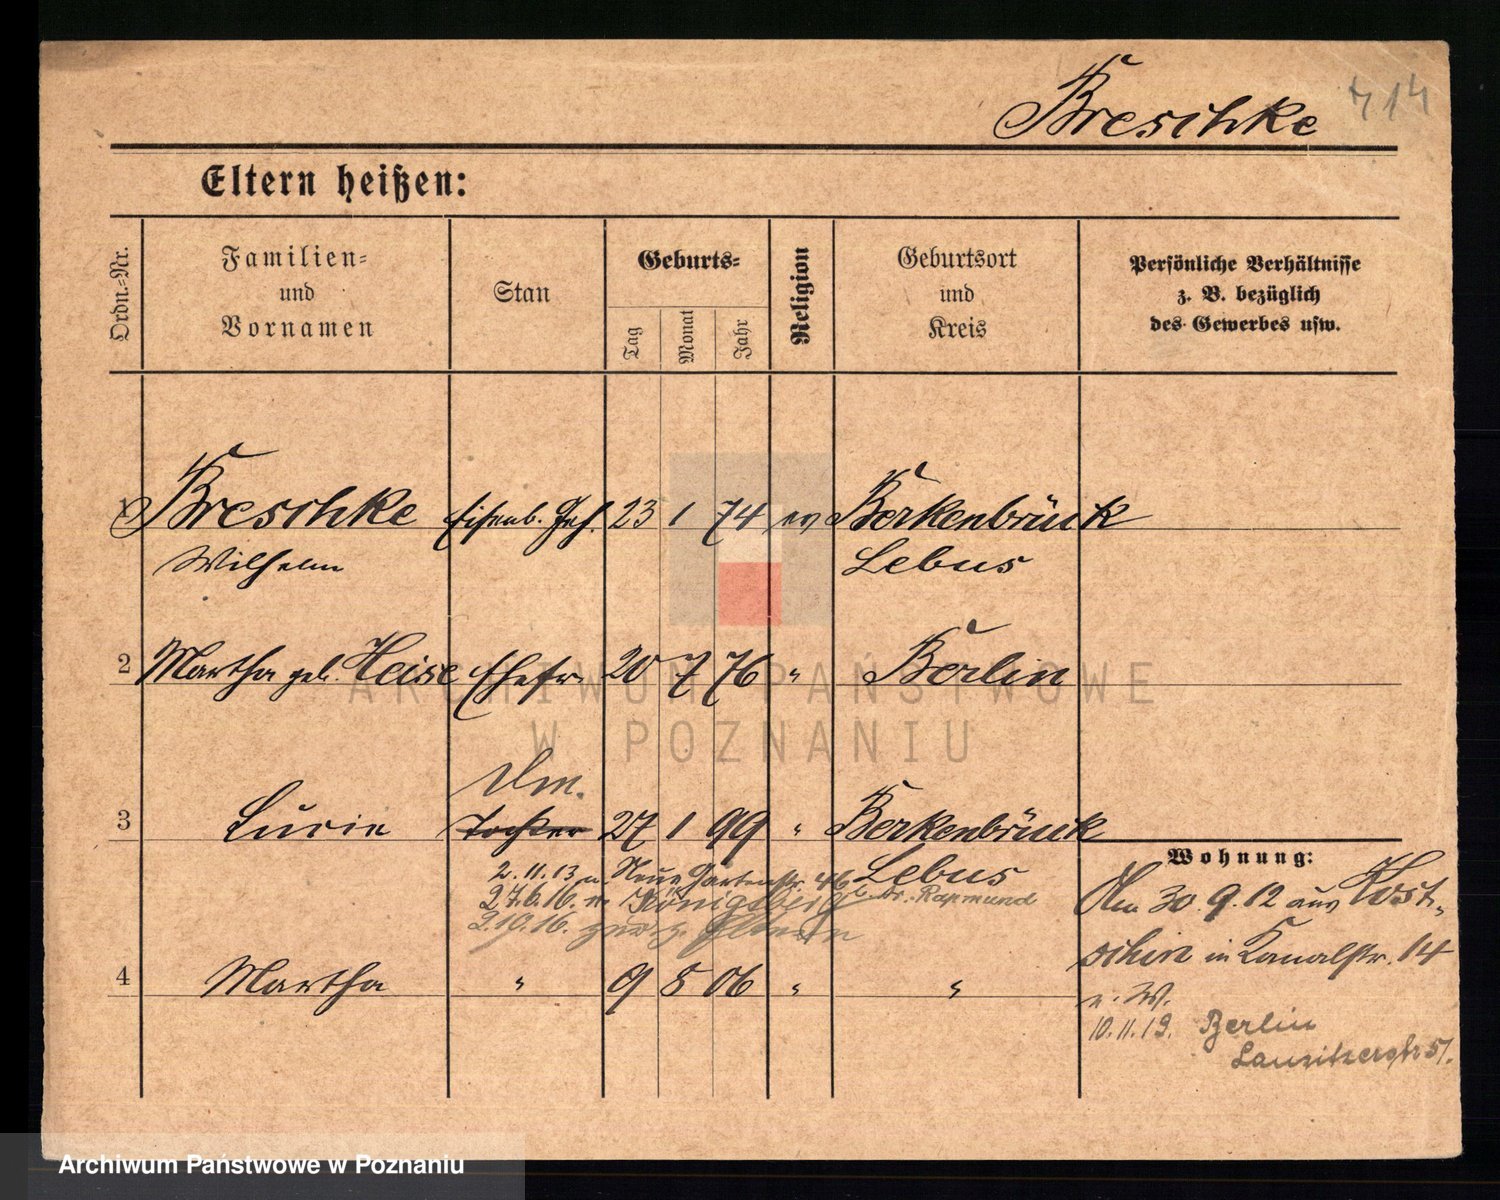 Breschke 414
Eltern heißen:
Ordn.-Nr.
Familien-
und
Vornamen
Stan
Geburts-
Tag
Monat
Jahr
Religion
Geburtsort
und
Kreis
Persönliche Verhältnisse
z. B. bezüglich
des Gewerbes usw.
1 Breschke Eisenb. Geh. 23 1 74 ev Berkenbrück
Wilhelm Lebus
2 Martha geb. Heise Ehefr. 20 7 76 " Berlin
Dm.
3 Lucie Tochter 27 1 99 " Berkenbrück
Lebus
2.11.13 n. Neue Gartenstr. 46
27.6.16. n. Königsberg b. Dr. Rapmund
2.10.16. zur. z. Eltern
4 Martha " 9 5 06 " "
Wohnung:
Am 30.9.12 aus Kost-
schin in Kanalstr. 14
n. W.
10.11.19. Berlin
Lausitzerstr 51.
ARCHIWUM PAŃSTWOWE
W POZNANIU
Archiwum Państwowe w Poznaniu